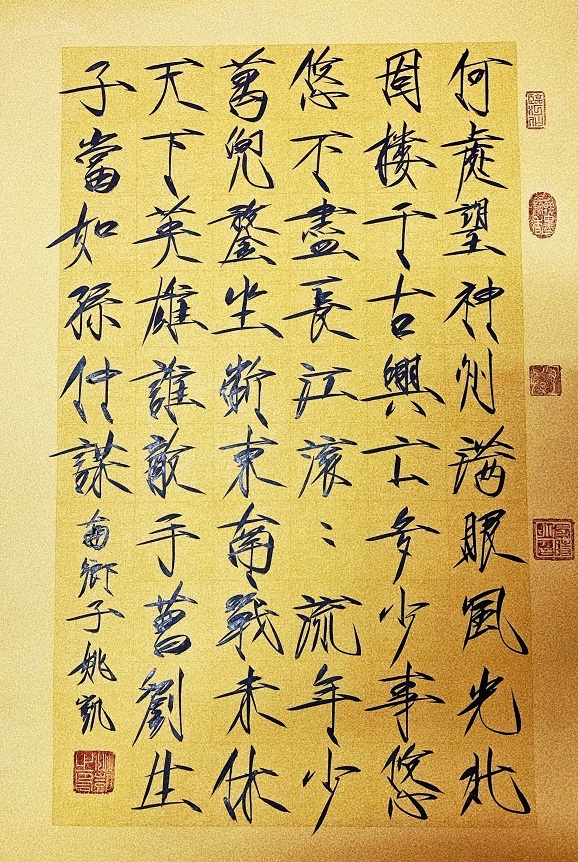 何處望神州滿眼風光北
固樓千古興亡多少事悠
悠不盡長江滾〻流年少
萬兜鍪坐斷東南戰未休
天下英雄誰敵手曹劉生
子當如孫仲謀 南鄉子姚凱